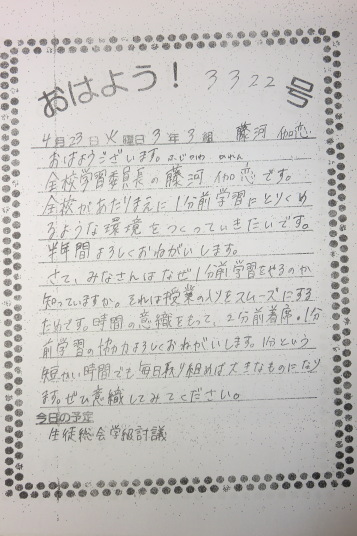 おはよう！ 3322号
4月23日火曜日3年3組 藤河 伽恋
おはようございます。ふじかわ かれん
全校学習委員長の藤河 伽恋です。
全校があたりまえに1分前学習にとりくめ
るような環境をつくっていきたいです。
半年間よろしくおねがいします。
さて、みなさんはなぜ1分前学習をやるのか
知っていますか。それは授業の入りをスムーズにする
ためです。時間の意織をもって、2分前着席。1分
前学習の協力よろしくおねがいします。1分という
短かい時間でも毎日取り組めば大きなものになり
ます。ぜひ意織してみてください。
今日の予定
生徒総会学級討議